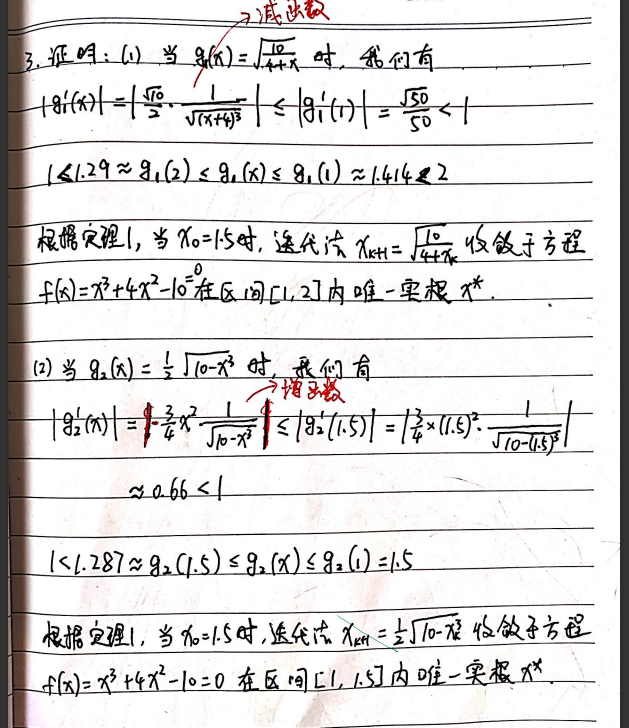 →减函数
3. 证明：(1) 当 g₁(x)=√(10/(4+x)) 时，我们有
|g₁'(x)| = |√10/2 · 1/√((x+4)³)| ≤ |g₁'(1)| = √50/50 < 1
1<1.29≈g₁(2)≤g₁(x)≤g₁(1)≈1.414<2
根据定理1，当 x₀=1.5时，迭代法 xₖ₊₁=√(10/(4+xₖ)) 收敛于方程
f(x)=x³+4x²-10=0在区间[1,2]内唯一实根 x*.
(2) 当 g₂(x)=½√(10-x³) 时，我们有
→增函数
|g₂'(x)| = |-3/4 x² 1/√(10-x³)| ≤ |g₂'(1.5)| = |3/4×(1.5)²· 1/√(10-(1.5)³)|
≈0.66<1
1<1.287≈g₂(1.5)≤g₂(x)≤g₂(1)=1.5
根据定理1，当 x₀=1.5时，迭代法 xₖ₊₁=½√(10-xₖ³) 收敛于方程
f(x)=x³+4x²-10=0 在区间[1,1.5]内唯一实根 x*.